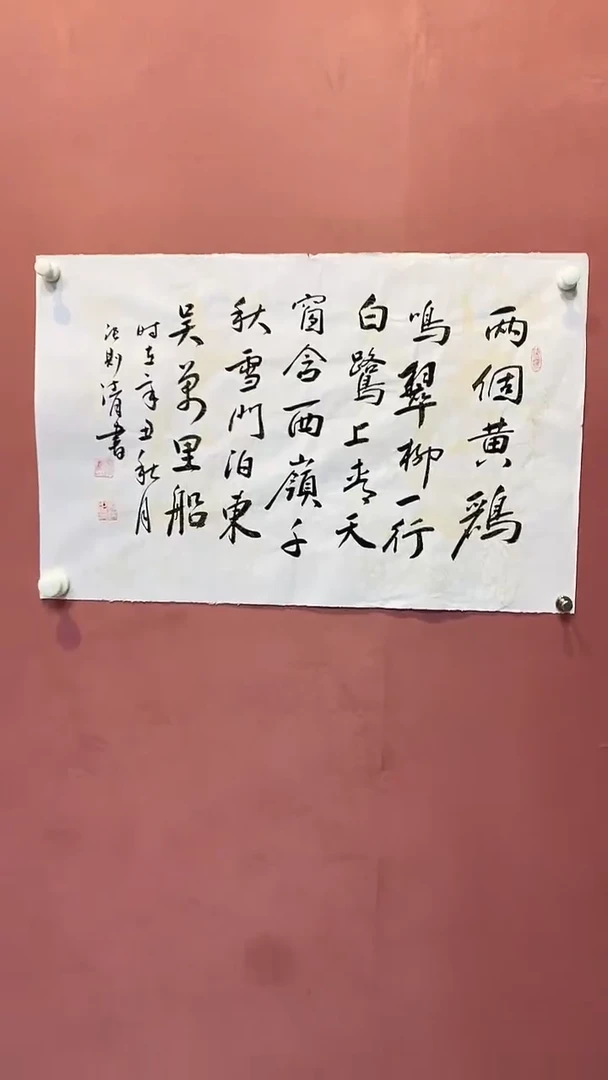 两個黄鸝
鳴翠柳一行
白鷺上青天
窗含西嶺千
秋雪門泊東
吴萬里船
时在辛丑秋月
则清書